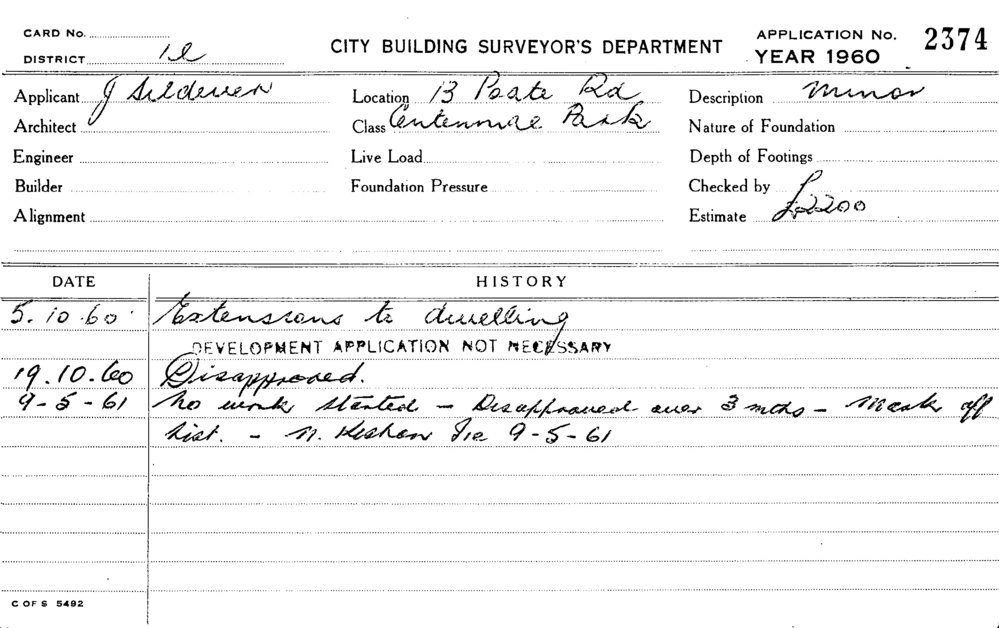 CARD No.
DISTRICT
CITY BUILDING SURVEYOR'S DEPARTMENT
APPLICATION No. 2374
YEAR 1960
Applicant J
Location 13 Poate Rd
Description Minor
Architect
Class Centennial Park
Nature of Foundation
Engineer
Live Load
Depth of Footings
Builder
Foundation Pressure
Checked by
Alignment
Estimate £2200
DATE HISTORY
5.10.60 Extensions to dwelling
DEVELOPMENT APPLICATION NOT NECESSARY
19.10.60 Disapproved.
9-5-61 No work started - Disapproved over 3 mths - Mark off
list. - N. 9-5-61
C OF S 5492